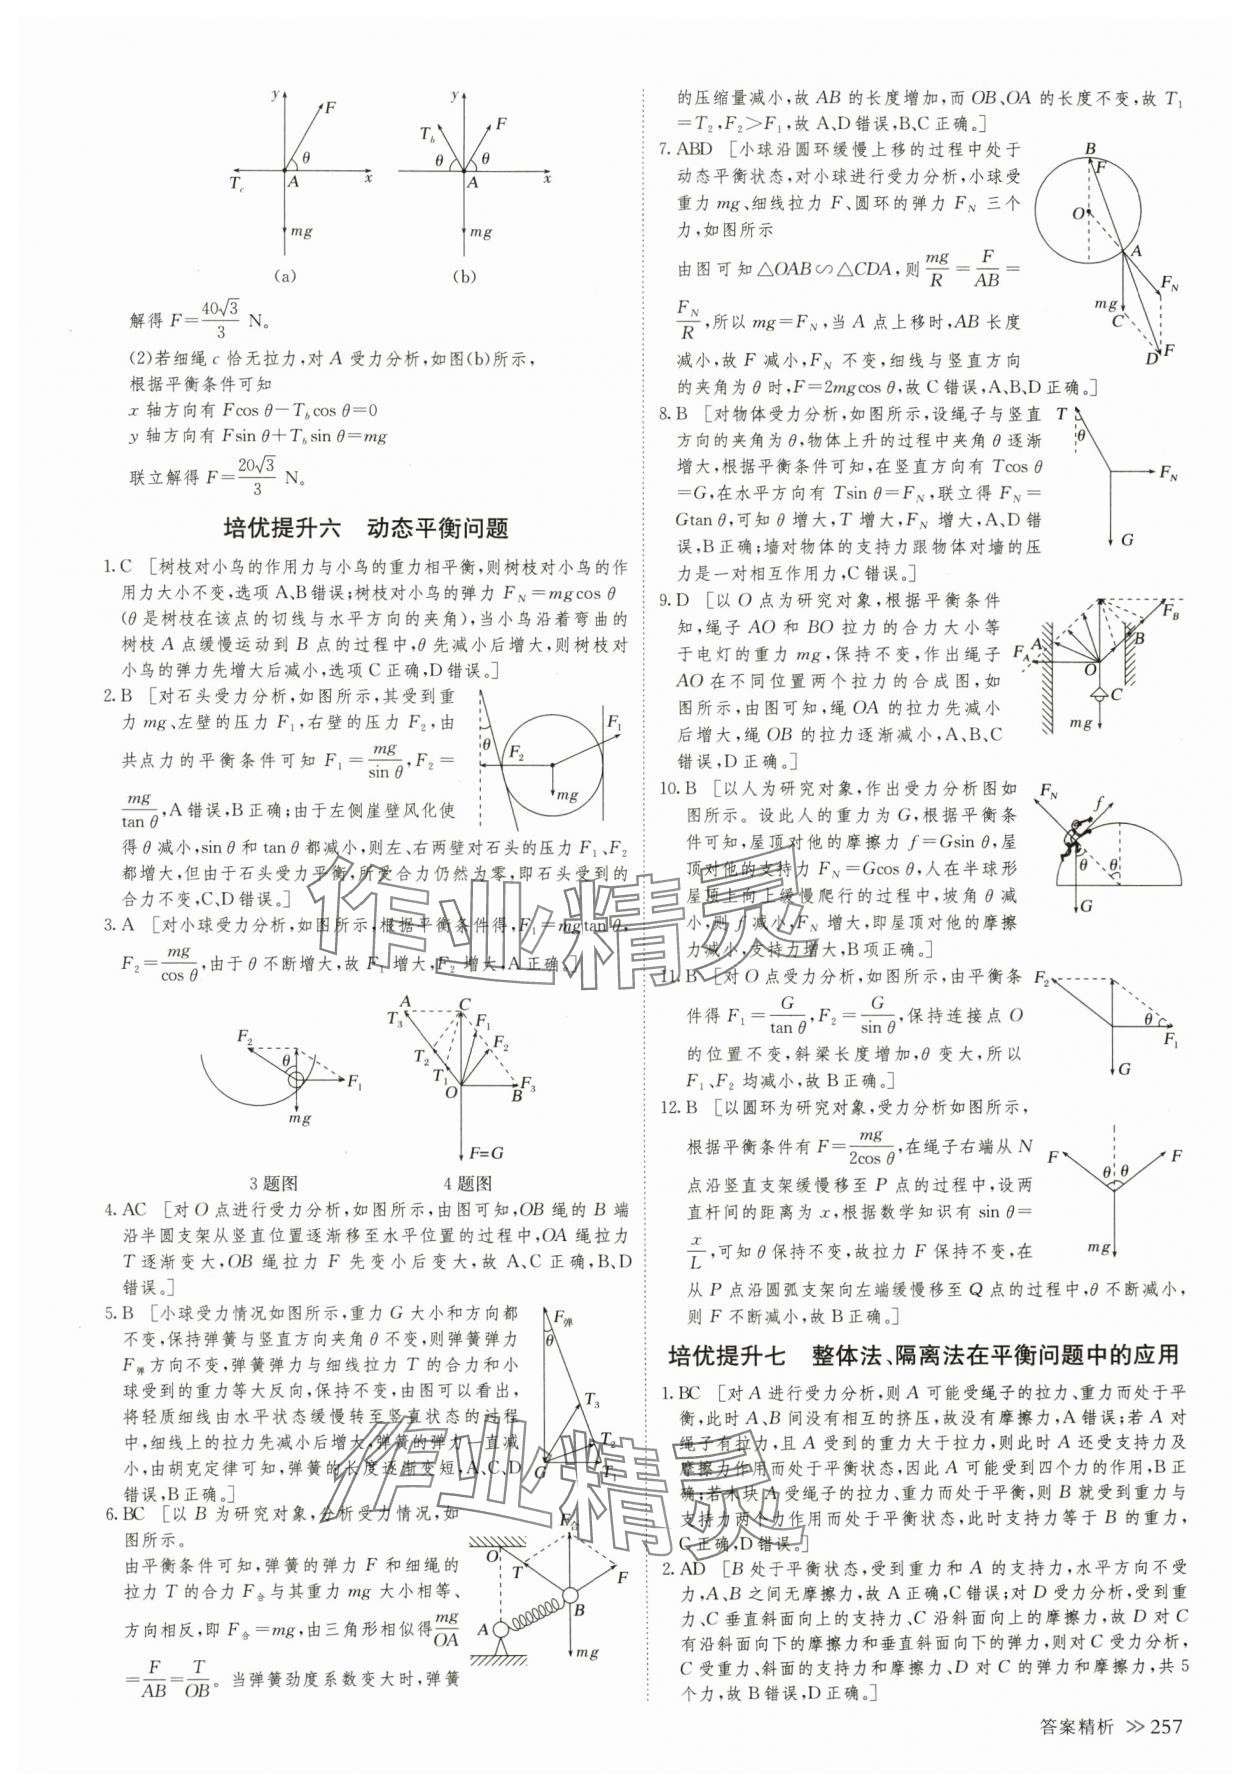 y
F
θ
T_c
A
x
mg
(a)
y
T_b
F
θ
θ
A
x
mg
(b)
解得 F=40√3/3 N。
(2)若细绳 c 恰无拉力,对 A 受力分析,如图(b)所示,
根据平衡条件可知
x 轴方向有 Fcos θ-T_b cos θ=0
y 轴方向有 Fsin θ+T_b sin θ=mg
联立解得 F=20√3/3 N。
培优提升六 动态平衡问题
1. C [树枝对小鸟的作用力与小鸟的重力相平衡,则树枝对小鸟的作
用力大小不变,选项 A、B 错误;树枝对小鸟的弹力 F_N=mgcos θ
(θ 是树枝在该点的切线与水平方向的夹角),当小鸟沿着弯曲的
树枝 A 点缓慢运动到 B 点的过程中,θ 先减小后增大,则树枝对
小鸟的弹力先增大后减小,选项 C 正确,D 错误。]
2. B [对石头受力分析,如图所示,其受到重
力 mg、左壁的压力 F₁,右壁的压力 F₂,由
共点力的平衡条件可知 F₁=mg/sin θ,F₂=
mg/tan θ,A 错误,B 正确;由于左侧崖壁风化使
得 θ 减小,sin θ 和 tan θ 都减小,则左、右两壁对石头的压力 F₁、F₂
都增大,但由于石头受力平衡,所受合力仍然为零,即石头受到的
合力不变,C、D 错误。]
θ
F₂
F₁
mg
3. A [对小球受力分析,如图所示,根据平衡条件得,F₁=mgtan θ,
F₂=mg/cos θ,由于 θ 不断增大,故 F₁ 增大,F₂ 增大,A 正确。]
F₂
θ
F₁
mg
3 题图
A
C
T₃
F₁
T₂
F₂
T₁
O
F₃
B
F=G
4 题图
4. AC [对 O 点进行受力分析,如图所示,由图可知,OB 绳的 B 端
沿半圆支架从竖直位置逐渐移至水平位置的过程中,OA 绳拉力
T 逐渐变大,OB 绳拉力 F 先变小后变大,故 A、C 正确,B、D
错误。]
5. B [小球受力情况如图所示,重力 G 大小和方向都
不变,保持弹簧与竖直方向夹角 θ 不变,则弹簧弹力
F弹 方向不变,弹簧弹力与细线拉力 T 的合力和小
球受到的重力等大反向,保持不变,由图可以看出,
将轻质细线由水平状态缓慢转至竖直状态的过程
中,细线上的拉力先减小后增大,弹簧的弹力一直减
小,由胡克定律可知,弹簧的长度逐渐变短,A、C、D
错误,B 正确。]
F弹
θ
T₃
T₂
G
T₁
6. BC [以 B 为研究对象,分析受力情况,如
图所示。
由平衡条件可知,弹簧的弹力 F 和细绳的
拉力 T 的合力 F合 与其重力 mg 大小相等、
方向相反,即 F合=mg,由三角形相似得 mg/OA
=F/AB=T/OB。当弹簧劲度系数变大时,弹簧
F合
O
T
F
B
A
mg
的压缩量减小,故 AB 的长度增加,而 OB、OA 的长度不变,故 T₁
=T₂,F₂>F₁,故 A、D 错误,B、C 正确。]
7. ABD [小球沿圆环缓慢上移的过程中处于
动态平衡状态,对小球进行受力分析,小球受
重力 mg、细线拉力 F、圆环的弹力 F_N 三个
力,如图所示
由图可知△OAB∽△CDA,则 mg/R=F/AB=
F_N/R,所以 mg=F_N,当 A 点上移时,AB 长度
减小,故 F 减小,F_N 不变,细线与竖直方向
的夹角为 θ 时,F=2mgcos θ,故 C 错误,A、B、D 正确。]
B
F
O
A
F_N
mg
C
D
F
8. B [对物体受力分析,如图所示,设绳子与竖直
方向的夹角为 θ,物体上升的过程中夹角 θ 逐渐
增大,根据平衡条件可知,在竖直方向有 Tcos θ
=G,在水平方向有 Tsin θ=F_N,联立得 F_N=
Gtan θ,可知 θ 增大,T 增大,F_N 增大,A、D 错
误,B 正确;墙对物体的支持力跟物体对墙的压
力是一对相互作用力,C 错误。]
T
θ
F_N
G
9. D [以 O 点为研究对象,根据平衡条件
知,绳子 AO 和 BO 拉力的合力大小等
于电灯的重力 mg,保持不变,作出绳子
AO 在不同位置两个拉力的合成图,如
图所示,由图可知,绳 OA 的拉力先减小
后增大,绳 OB 的拉力逐渐减小,A、B、C
错误,D 正确。]
F_B
A
B
F_A
O
C
mg
10. B [以人为研究对象,作出受力分析图如
图所示。设此人的重力为 G,根据平衡条
件可知,屋顶对他的摩擦力 f=Gsin θ,屋
顶对他的支持力 F_N=Gcos θ,人在半球形
屋顶上向上缓慢爬行的过程中,坡角 θ 减
小,则 f 减小,F_N 增大,即屋顶对他的摩擦
力减小,支持力增大,B 项正确。]
F_N
f
θ
θ
G
11. B [对 O 点受力分析,如图所示,由平衡条
件得 F₁=G/tan θ,F₂=G/sin θ,保持连接点 O
的位置不变,斜梁长度增加,θ 变大,所以
F₁、F₂ 均减小,故 B 正确。]
F₂
θ
F₁
G
12. B [以圆环为研究对象,受力分析如图所示,
根据平衡条件有 F=mg/2cos θ,在绳子右端从 N
点沿竖直支架缓慢移至 P 点的过程中,设两
直杆间的距离为 x,根据数学知识有 sin θ=
x/L,可知 θ 保持不变,故拉力 F 保持不变,在
从 P 点沿圆弧支架向左端缓慢移至 Q 点的过程中,θ 不断减小,
则 F 不断减小,故 B 正确。]
F
θ
θ
F
mg
培优提升七 整体法、隔离法在平衡问题中的应用
1. BC [对 A 进行受力分析,则 A 可能受绳子的拉力、重力而处于平
衡,此时 A、B 间没有相互的挤压,故没有摩擦力,A 错误;若 A 对
绳子有拉力,且 A 受到的重力大于拉力,则此时 A 还受支持力及
摩擦力作用而处于平衡状态,因此 A 可能受到四个力的作用,B 正
确;若木块 A 受绳子的拉力、重力而处于平衡,则 B 就受到重力与
支持力两个力作用而处于平衡状态,此时支持力等于 B 的重力,
C 正确,D 错误。]
2. AD [B 处于平衡状态,受到重力和 A 的支持力,水平方向不受
力,A、B 之间无摩擦力,故 A 正确,C 错误;对 D 受力分析,受到重
力、C 垂直斜面向上的支持力、C 沿斜面向上的摩擦力,故 D 对 C
有沿斜面向下的摩擦力和垂直斜面向下的弹力,则对 C 受力分析,
C 受重力、斜面的支持力和摩擦力、D 对 C 的弹力和摩擦力,共 5
个力,故 B 错误,D 正确。]
作业精灵
作业精灵
答案精析 >> 257